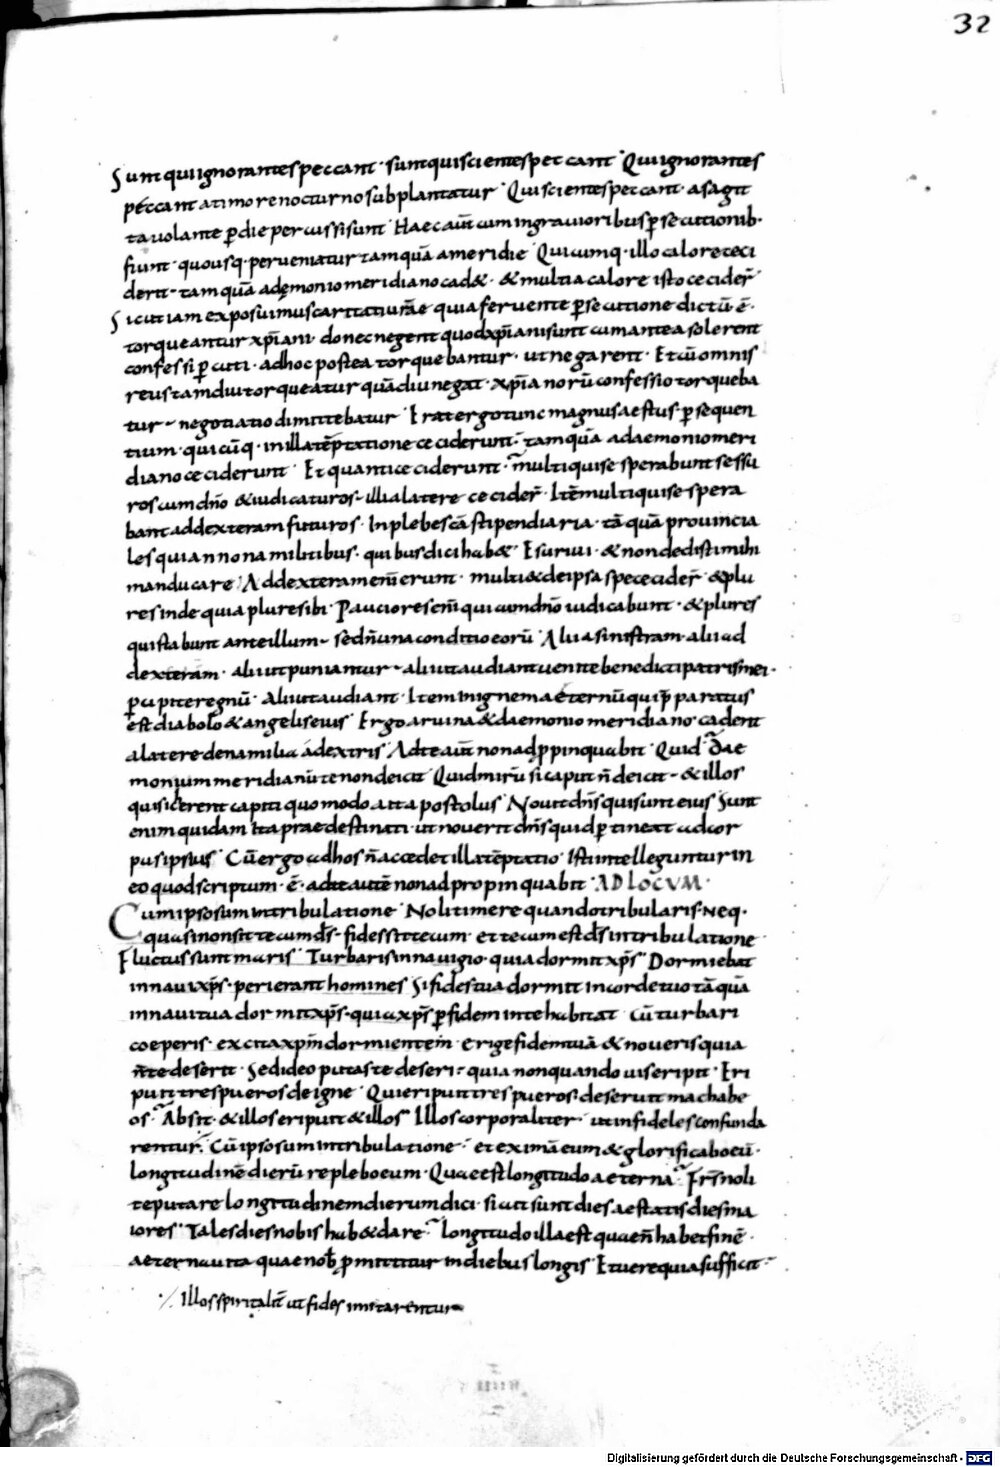 32
Sunt qui ignorantes peccant · sunt qui scientes peccant · Qui ignorantes
peccant a timore nocturno subplantatur · Qui scientes peccant · a sagit
ta volante p̄ die percussi sunt · Haec aut̄ cum ingravioribus p̄secutionib·
fiunt · quousq· perveniatur tamquā a meridie · Quicumq· illo calore ceci
derit · tamquā a dęmonio meridiano cad& · & multi a calore isto cecider̄
Sicut iam exposuimus caritati v̄rae quia fervente p̄secutione dictū ē·
torqueantur xp̄iani · donec negent quod xp̄iani sunt cum antea solerent
confessi p̄cuti · adhoc postea torquebantur · ut negarent · Et cū omnis
reus tamdiu torqueatur quādiu negat · xp̄ianorū confessio torqueba
tur · negotiatio dimittebatur · Erat ergo tunc magnus aestus · p̄sequen
tium · quicūq· in illa tēptatione ceciderunt · tamquā a daemonio meri
diano ceciderunt · Et quanti ceciderunt · multi qui se sperabunt sessu
ros cum dn̄o & iudicaturos · illi a latere cecider̄ · Itē multi qui se spera
bant ad dexteram futuros · In plebe scā stipendiaria · tāquā provincia
les qui annona militibus · quibus dici hab& · Esurivi · & non dedistimihi
manducare · Ad dexteram enī erunt · multi & de ipsa spe cecider̄ · & plu
res inde quia plures ibi · Pauciores enī qui cum dn̄o iudicabunt · & plures
qui stabunt ante illum · sed n̄ una conditio eorū · Alii a sinistram · alii ad
dexteram · alii ut puniantur · alii ut audiant venite benedicti patris mei ·
p̄cipite regnū · Alii ut audiant · Ite in ignem aeternū qui p̄paratus
est diabolo & angelis eius · Ergo a ruina & daemonio meridiano · cadent
a latere de na milia a dextris · Ad te aut̄ non adp̄pinquabit · Quid · dae
monium meridianū te non deicit · Quid mirū si caput n̄ deicit · & illos
qui sic erent capiti quomodo ait apostolus · Novit dn̄s qui sunt eius · Sunt
enim quidam ita praedestinati · ut noverit dn̄s quid p̄tineat ad cor
pus ipsius · Cū ergo ad hos n̄ accedet illa tēptatio · Isti intelleguntur in
eo quod scriptum · ē · ad te autē non adpropinquabit · AD LOCUM ·
Cum ipso sum in tribulatione · Noli timere quando tribularis · Neq·
quasi non sit tecum d̄s · fides sit tecum · et tecum est d̄s in tribulatione
Fluctus sunt maris · Turbaris in navigio · quia dormit xp̄s · Dormiebat
in navi xp̄s · perierant homines · Si fides tua dormit in corde tuo tāquā
in navi tua dormit xp̄s · quia xp̄s p̄ fidem in te habitat · Cū turbari
coeperis · excita xp̄m dormientem · erige fidem tuā & noveris quia
n̄ te deserit · Sed ideo putas te deseri · quia non quando vis eripit · Eri
puit tres pueros de igne · Qui eripuit tres pueros · deseruit machabe
os · Absit · & illos eripuit & illos · Illos corporaliter · ut infideles confunda
rentur · Cū ipso sum in tribulatione · et eximā eum & glorificabo eū ·
longitudinē dierū replebo eum · Quae est longitudo aeterna · Fr̄s noli
te putare longitudinem dierum dici · sicut sunt dies aestatis dies ma
iores · Tales dies nobis hab& dare · longitudo illa est quae n̄ habet finē ·
aeterna vita quae nob̄ p̄mittitur in diebus longis · Et vere quia sufficit ·
⁒ Illos spiritalit̄ ut fides imitarentur
Digitalisierung gefördert durch die Deutsche Forschungsgemeinschaft - DFG